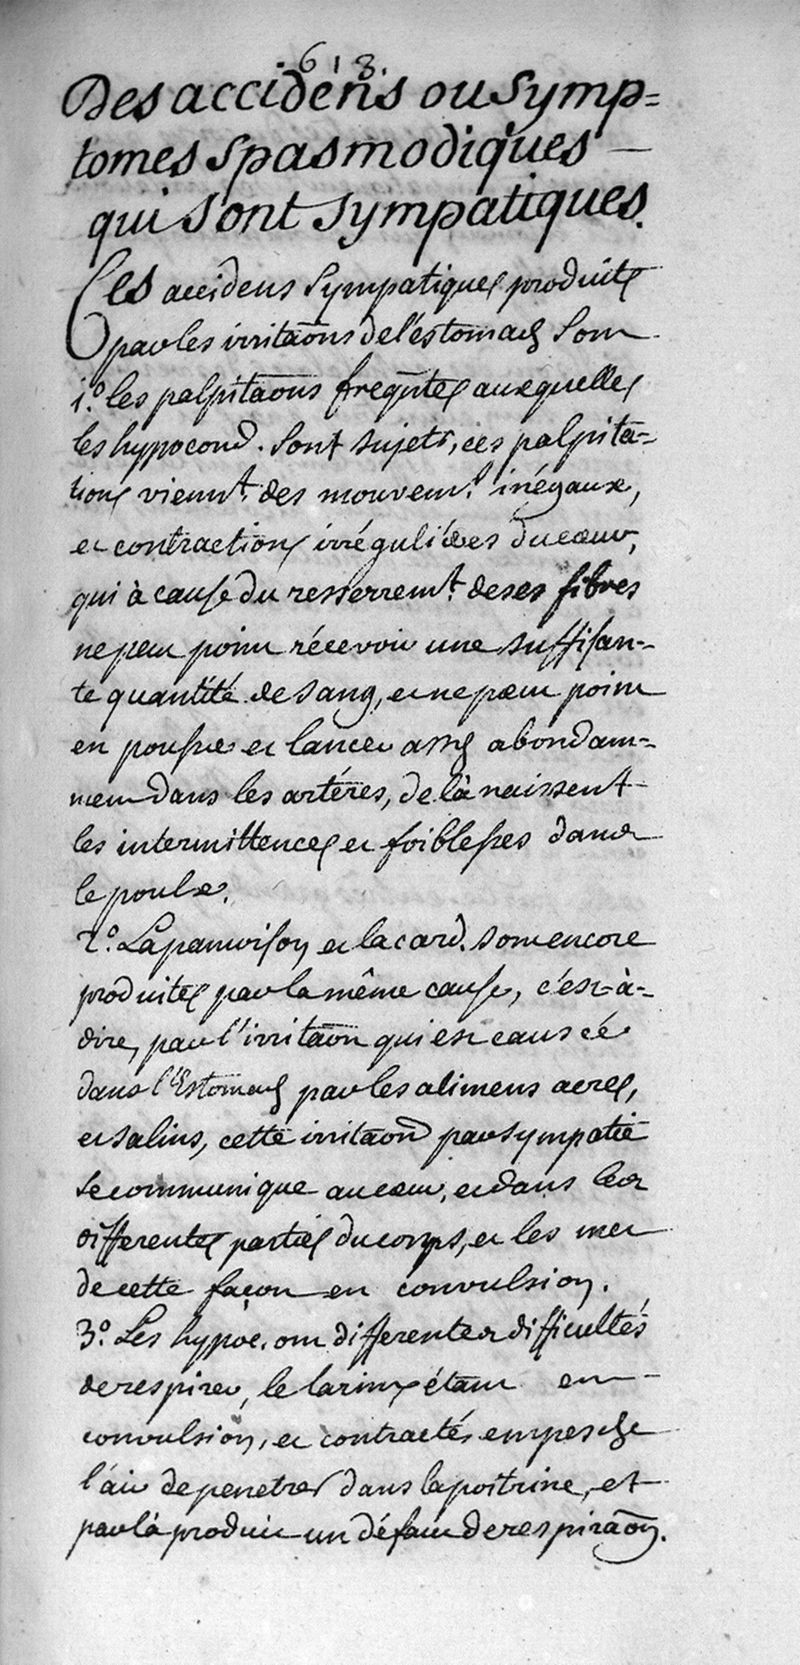 618.
Des accidens ou symp=
tomes spasmodiques —
qui sont sympatiques.
Ces accidens sympatiques produits
par les irritaõns de l'estomach sont
1.º les palpitaõns freqũtes auxquelles
les hypocond. sont sujets, ces palpita=
tions viennt. des mouvemt. inégaux,
et contractions irréguliéres du cœur,
qui à cause du resserremt. de ses fibres
ne peut point récevoir une suffisan=
te quantité de sang, et ne peut point
en pousser et lancer assés abondam=
ment dans les artéres, de là naissent
les intermittences et foiblesses dans
le poulx.
2.º La pamoison et la card. sont encore
produites par la même cause, c'est-à-
dire, par l'irritaõn qui est causée
dans l'Estomach par les alimens acres,
et salins, cette irritaõn par sympatie
se communique au cœur, et dans les
differentes parties du corps, et les met
de cette façon en convulsion.
3.º Les hypoc. ont differentes difficultés
de respirer, le larinx étant en —
convulsion, et contractés empesche
l'air de penetrer dans la poitrine, et
par là produit un défaut de respiraõn.